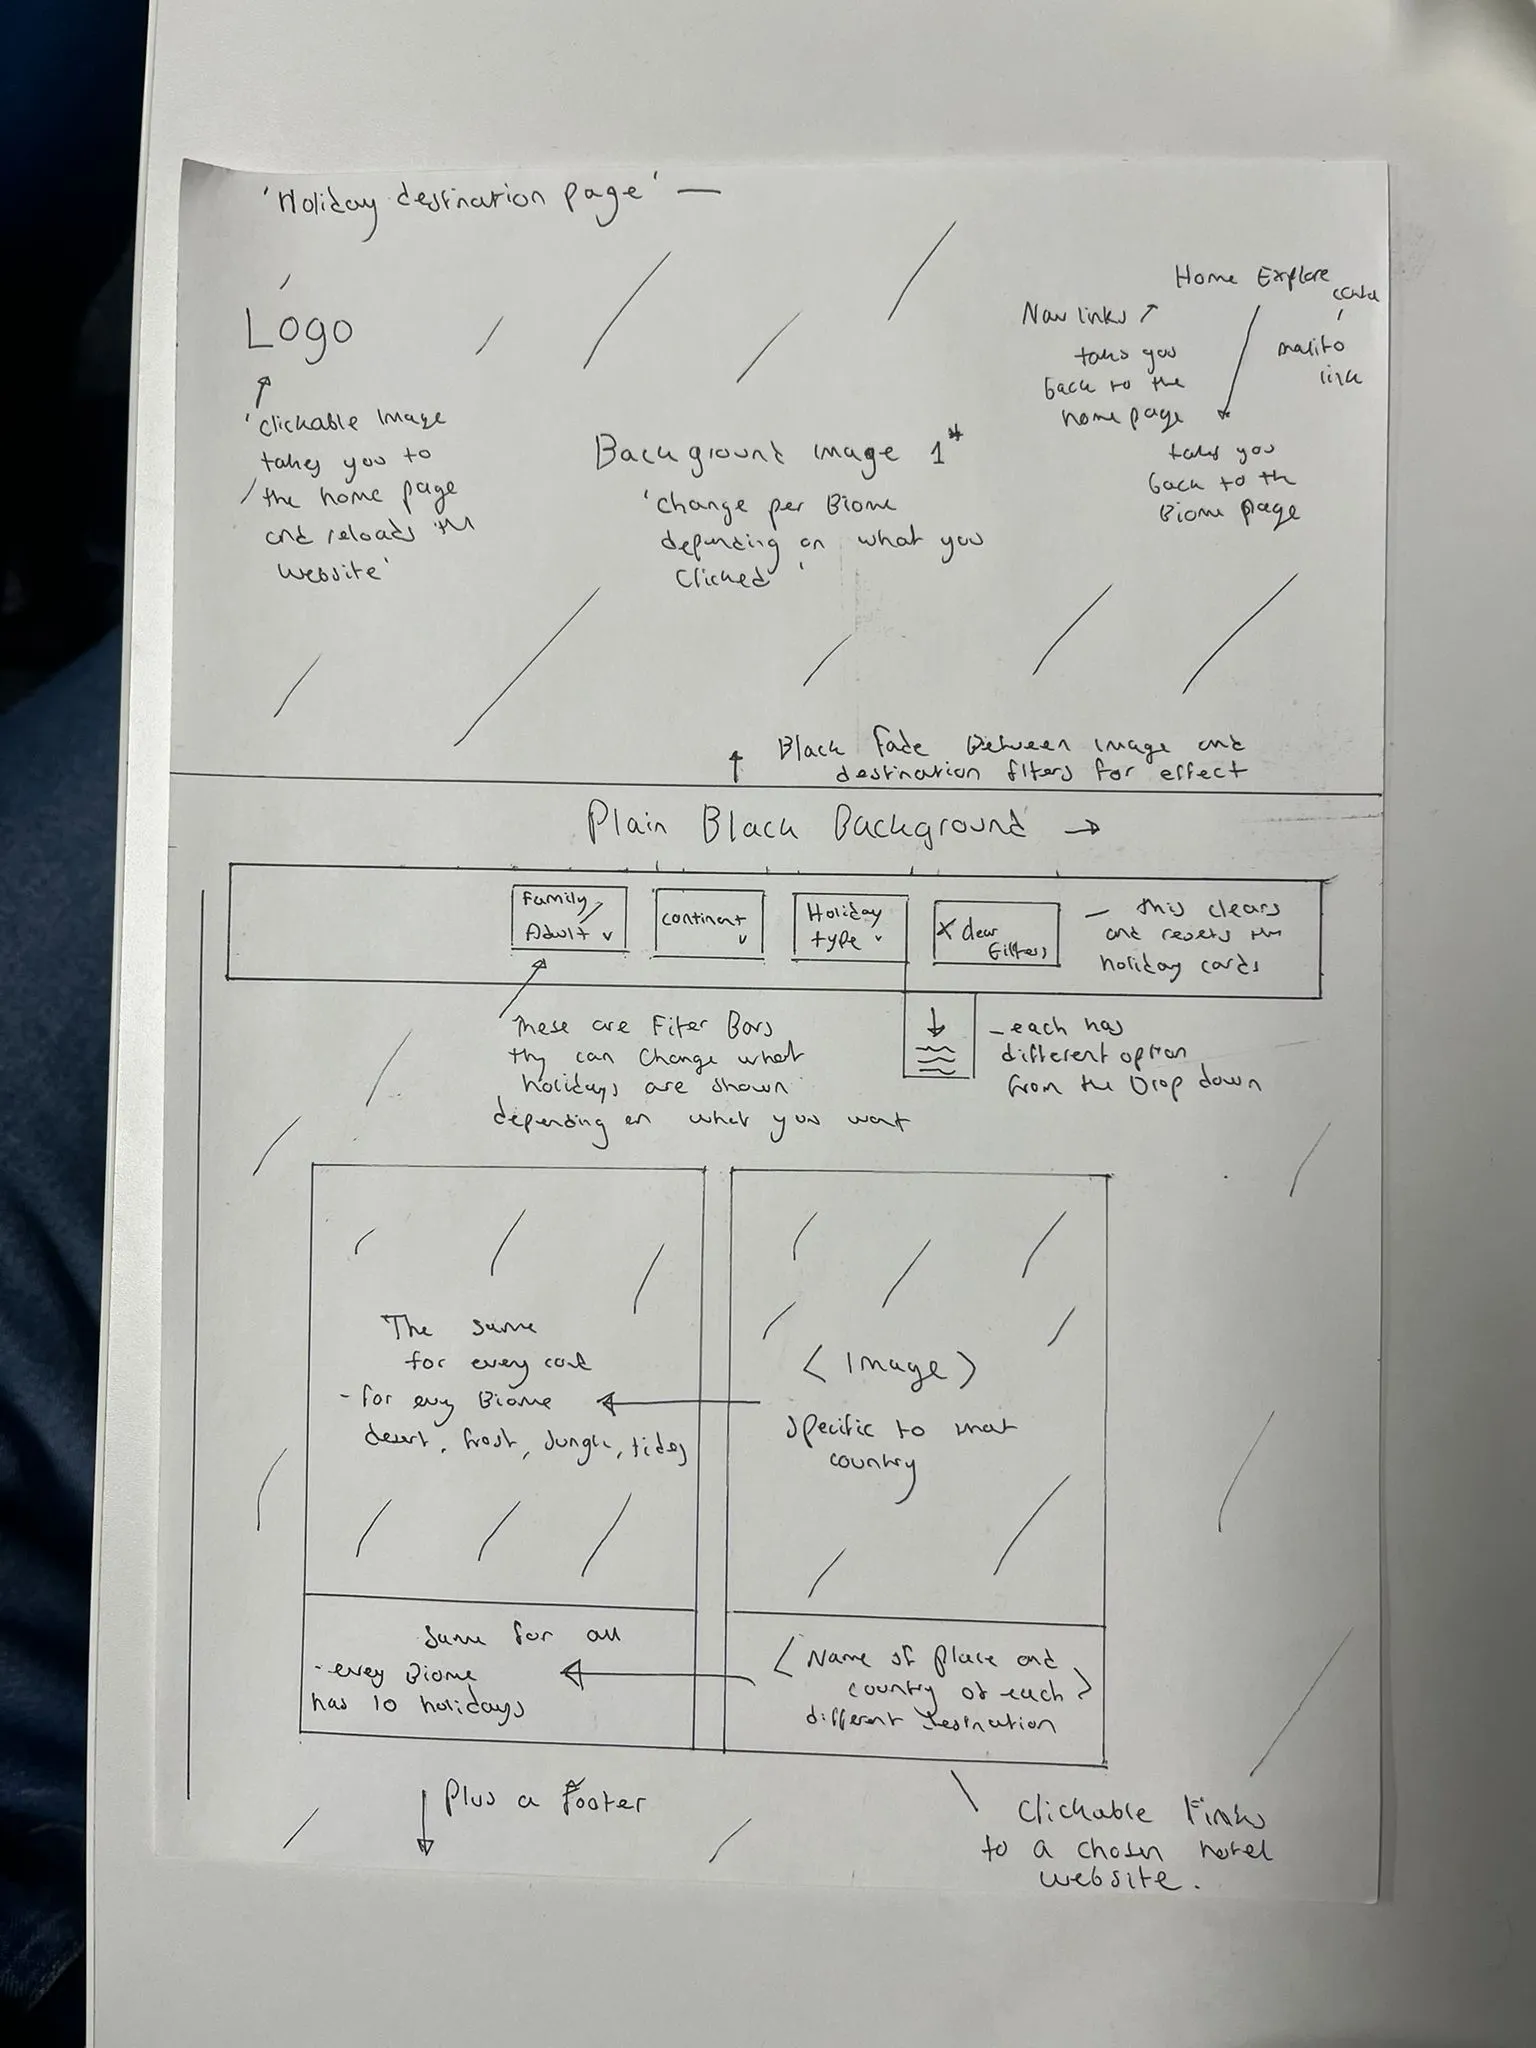 'Holiday destination page' —
Logo
'Clickable image
takes you to
the home page
and reloads the
website'
Home Explore
Nav links
takes you
back to the
home page
mailto
link
takes you
back to the
Biome page
Background image 1*
'Change per Biome
depending on what you
clicked'
Black fade between image and
destination filters for effect
Plain Black Background →
Family/
Adult v
Continent
v
Holiday
type v
X Clear
Filters
— this clears
and resets the
holiday cards
These are Filter Bars
they can change what
holidays are shown
depending on what you want
- each has
different option
from the Drop down
The same
for every card
- for every Biome
desert, frost, Jungle, tides
< Image >
Specific to that
country
Same for all
- every Biome
has 10 holidays
< Name of place and
country of each >
different destination
Plus a footer
Clickable links
to a chosen hotel
website.